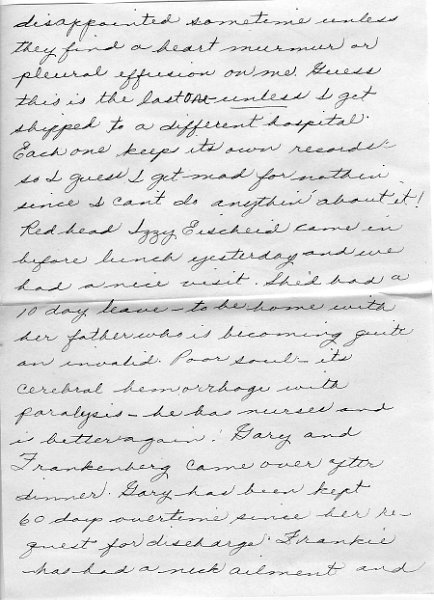 disappointed sometime unless
they find a heart murmur or
pleural effusion on me. Guess
this is the last one - unless I get
shipped to a different hospital.
Each one keep its own records -
so I guess I get mad for nothin'
since I can't do anythin' about it!
Red head Izzy Eischeid came in
before lunch yesterday and we
had a nice visit. She'd had a
10 day leave - to be home with
her father who is becoming quite
an invalid. Poor soul - its
cerebral hemorrhage with
paralysis - he has nurses and
is better again. Gary and
Frankenberg came over after
dinner. Gary has been kept
60 days overtime since her re-
quest for discharge. Frankie
has had a neck ailment and